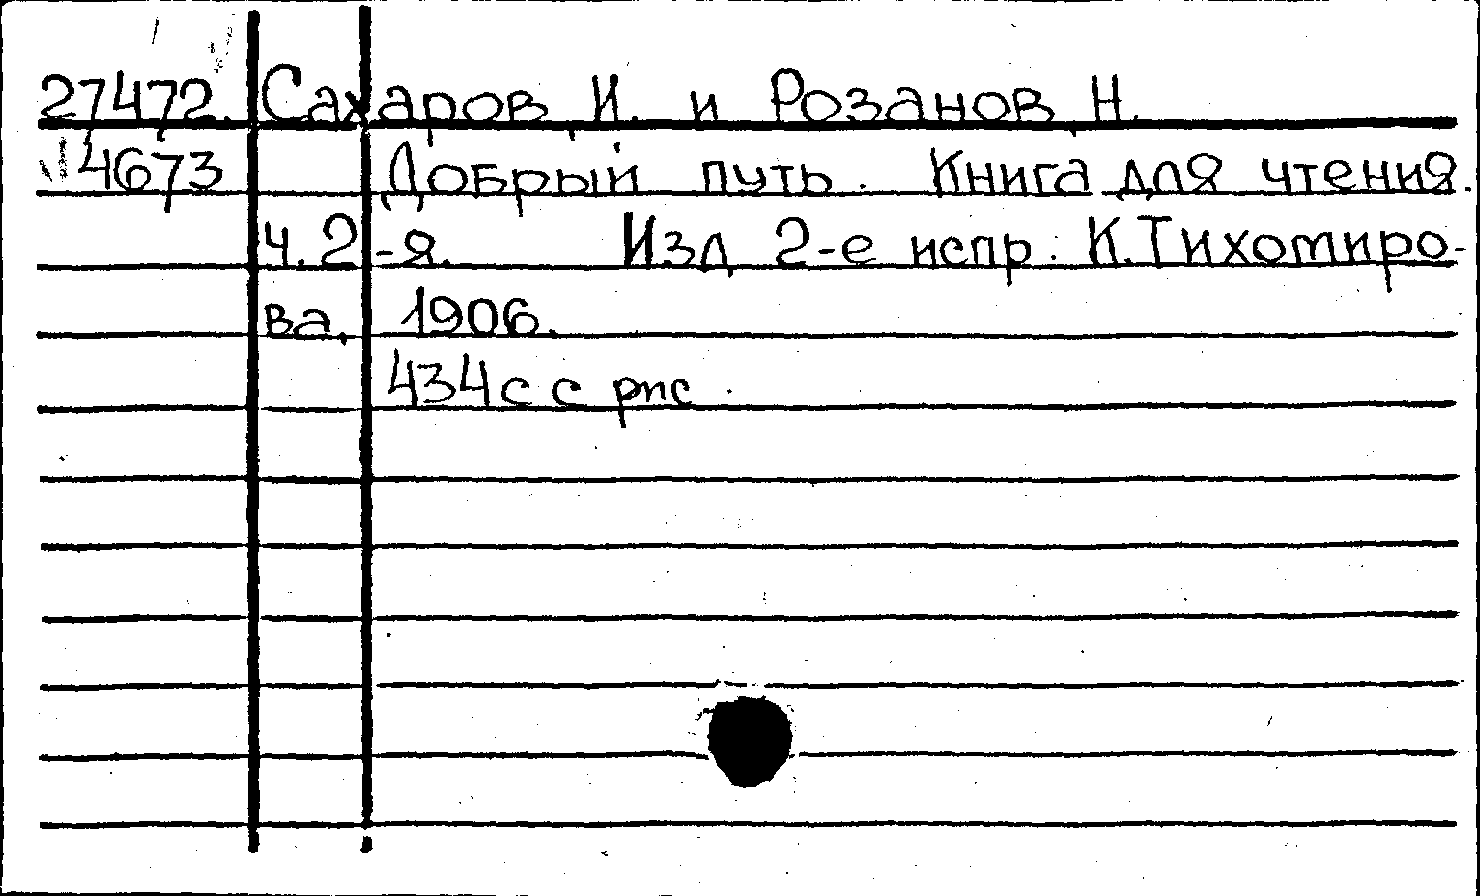 27472. Сахаров, И. и Розанов, Н.
4673 Добрый путь. Книга для чтения.
ч. 2-я. Изд 2-е испр. К. Тихомиро-
ва, 1906.
434 с с рис.